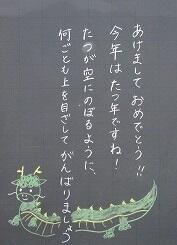 あけまして おめでとう!!
今年は たつ年ですね!
たつが空にのぼるように、
何ごとも上を目ざして がんばりましょう